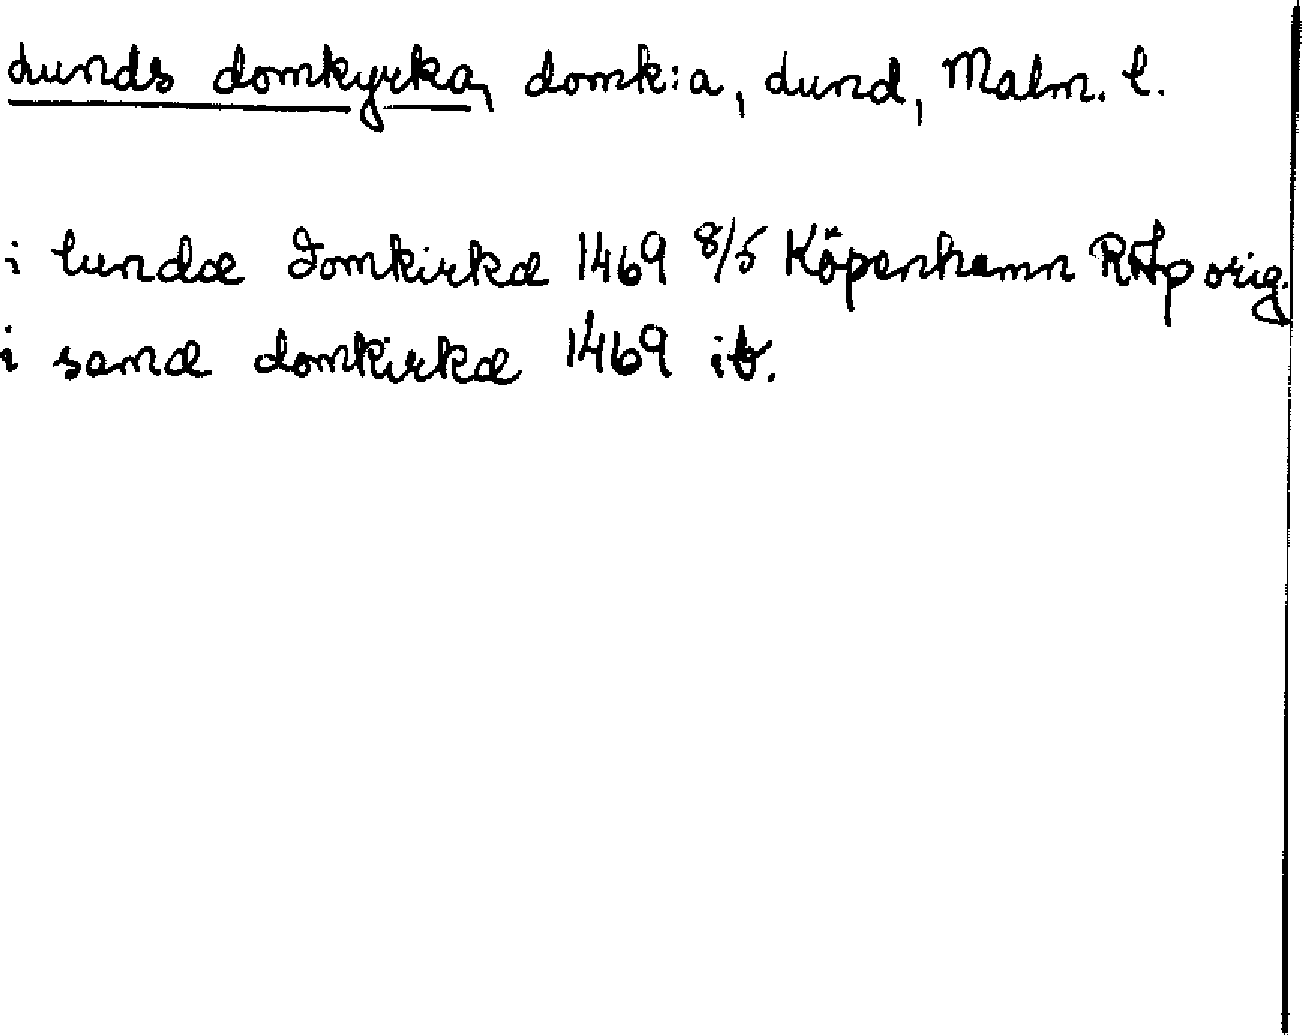 Lunds domkyrka, domk:a, Lund, Malm. l.
i lundæ Domkirkæ 1469 8/5 Köpenhamn RAp orig.
i samæ domkirkæ 1469 ib.